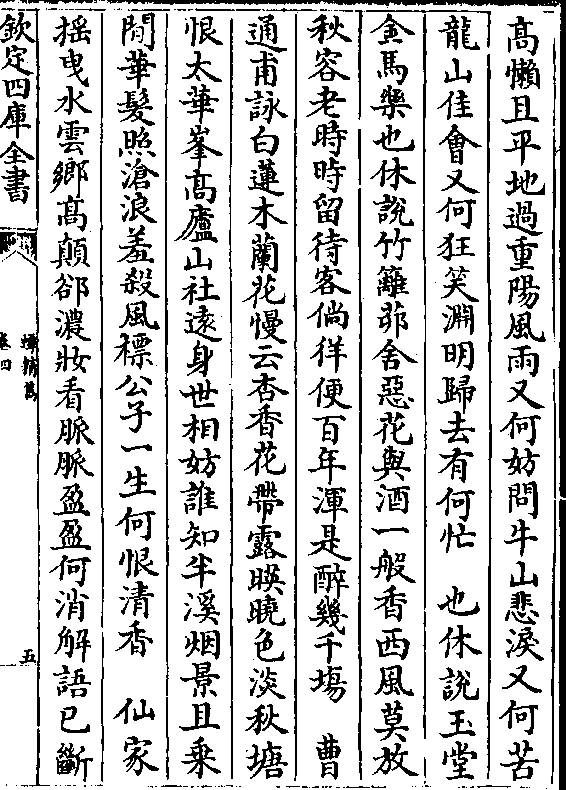 高懶且平地過重陽風雨又何妨問牛山悲淚又何苦
龍山佳會又何狂笑淵明歸去有何忙　也休說玉堂
金馬樂也休說竹籬茆舍惡花與酒一般香西風莫放
秋容老時時留待客徜徉便百年渾是醉幾千場　曹
通甫詠白蓮木蘭花慢云杏香花帶露暎曉色淡秋塘
恨太華峯髙廬山社逺身世相妨誰知半溪烟景且乗
閒華髮照滄浪羞殺風標公子一生何恨清香　仙家
揺曳水雲鄉髙顛郤濃妝看脈脈盈盈何消解語已斷
欽定四庫全書
蟫精雋
卷四
五